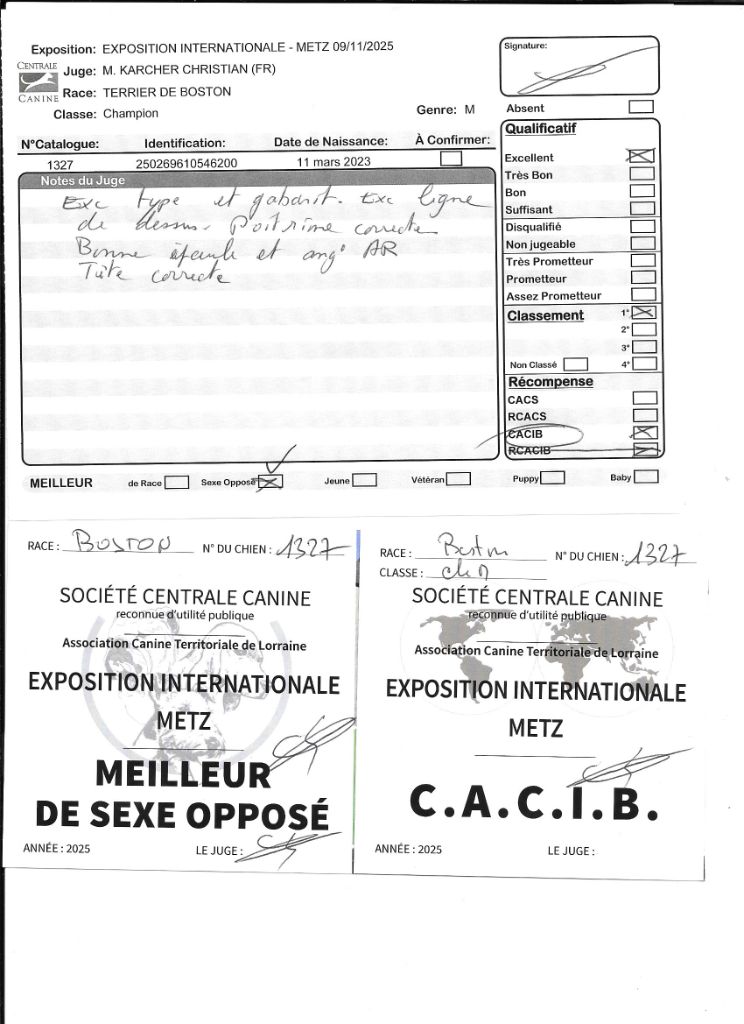 Exposition: EXPOSITION INTERNATIONALE - METZ 09/11/2025
Signature:
CENTRALE
CANINE
Juge: M. KARCHER CHRISTIAN (FR)
Race: TERRIER DE BOSTON
Classe: Champion
Genre: M
Absent
N°Catalogue: Identification: Date de Naissance: À Confirmer:
1327 250269610546200 11 mars 2023
Notes du Juge
Exc type et gabarit. Exc ligne
de dessus. Poitrine correcte
Bonne épaule et ang° AR
Tête correcte
Qualificatif
Excellent
Très Bon
Bon
Suffisant
Disqualifié
Non jugeable
Très Prometteur
Prometteur
Assez Prometteur
Classement 1°
2°
3°
Non Classé 4°
Récompense
CACS
RCACS
CACIB
RCACIB
MEILLEUR de Race Sexe Opposé Jeune Vétéran Puppy Baby
RACE : BOSTON N° DU CHIEN : 1327
SOCIÉTÉ CENTRALE CANINE
reconnue d'utilité publique
Association Canine Territoriale de Lorraine
EXPOSITION INTERNATIONALE
METZ
MEILLEUR
DE SEXE OPPOSÉ
ANNÉE : 2025 LE JUGE :
RACE : Boston N° DU CHIEN : 1327
CLASSE :
SOCIÉTÉ CENTRALE CANINE
reconnue d'utilité publique
Association Canine Territoriale de Lorraine
EXPOSITION INTERNATIONALE
METZ
C.A.C.I.B.
ANNÉE : 2025 LE JUGE :